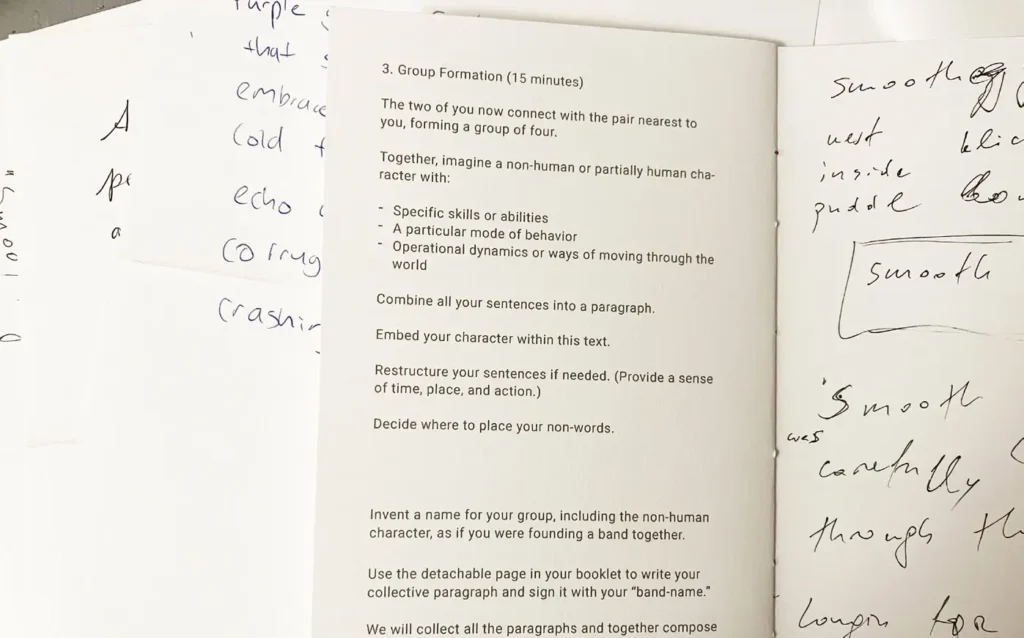 Purple
that
embrace
Cold
echo
corrug
crashin
A
a
3. Group Formation (15 minutes)
The two of you now connect with the pair nearest to
you, forming a group of four.
Together, imagine a non-human or partially human cha-
racter with:
- Specific skills or abilities
- A particular mode of behavior
- Operational dynamics or ways of moving through the
world
Combine all your sentences into a paragraph.
Embed your character within this text.
Restructure your sentences if needed. (Provide a sense
of time, place, and action.)
Decide where to place your non-words.
Invent a name for your group, including the non-human
character, as if you were founding a band together.
Use the detachable page in your booklet to write your
collective paragraph and sign it with your “band-name.”
We will collect all the paragraphs and together compose
smooth
inside
puddle
smooth
Smooth
was
carefully
through